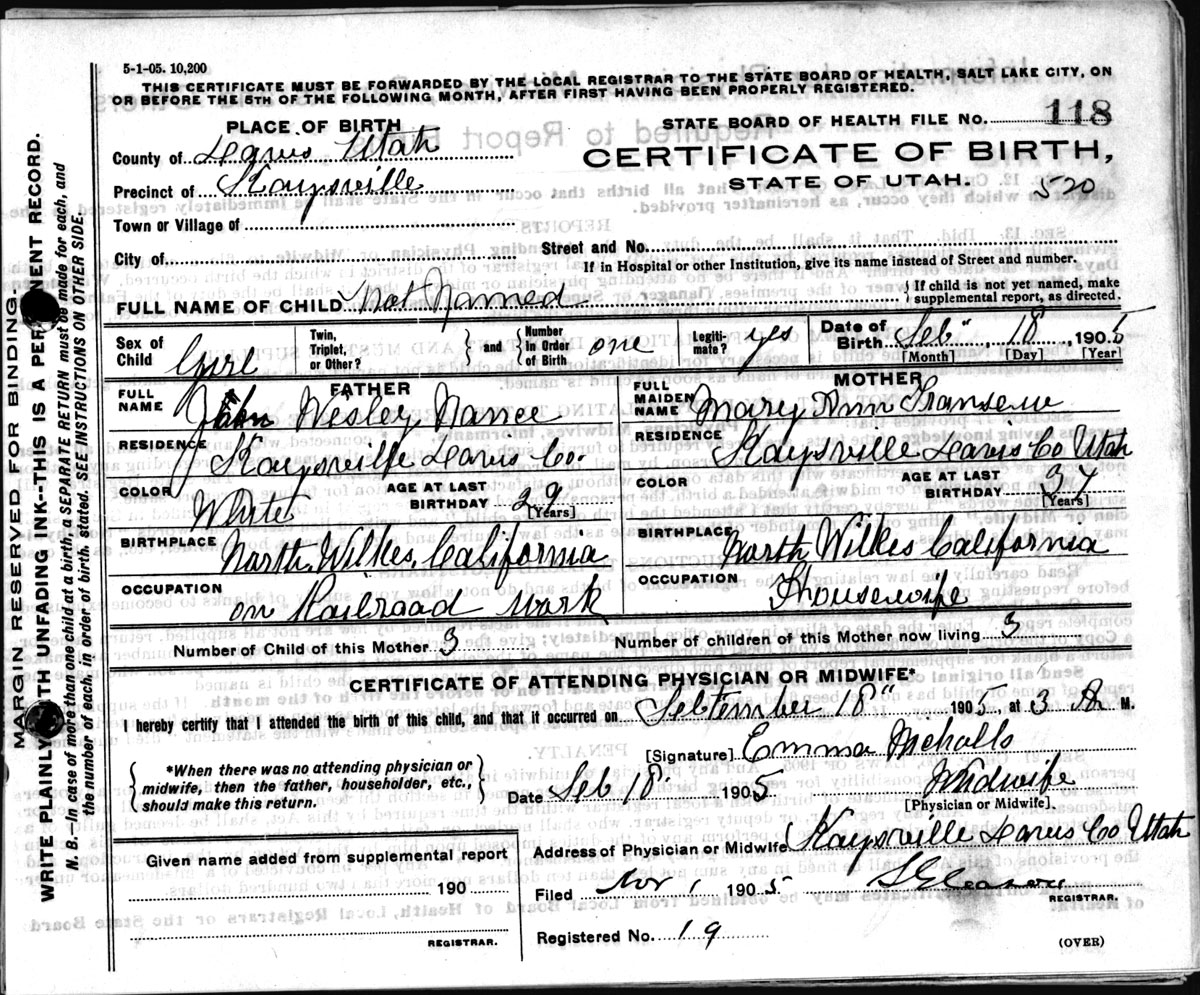 5-1-05. 10,200
THIS CERTIFICATE MUST BE FORWARDED BY THE LOCAL REGISTRAR TO THE STATE BOARD OF HEALTH, SALT LAKE CITY, ON
OR BEFORE THE 5TH OF THE FOLLOWING MONTH, AFTER FIRST HAVING BEEN PROPERLY REGISTERED.
PLACE OF BIRTH
STATE BOARD OF HEALTH FILE NO. 118
County of Davis Utah
CERTIFICATE OF BIRTH,
Precinct of Kaysville
STATE OF UTAH. 520
Town or Village of
City of Street and No.
If in Hospital or other Institution, give its name instead of Street and number.
FULL NAME OF CHILD Not Named { If child is not yet named, make supplemental report, as directed.
Sex of Child Girl Twin, Triplet, or Other? } and { Number in Order of Birth one Legiti-mate? yes Date of Birth Seb" 18, 1905
[Month] [Day] [Year]
FATHER MOTHER
FULL NAME John Wesley Nance FULL MAIDEN NAME Mary Ann Transeu
RESIDENCE Kaysville Davis Co. RESIDENCE Kaysville Davis Co Utah
COLOR White AGE AT LAST BIRTHDAY 29 [Years] COLOR AGE AT LAST BIRTHDAY 37 [Years]
BIRTHPLACE North Wilkes, California BIRTHPLACE North Wilkes California
OCCUPATION on Railroad Work OCCUPATION Housewife
Number of Child of this Mother 3 Number of children of this Mother now living 3
CERTIFICATE OF ATTENDING PHYSICIAN OR MIDWIFE*
I hereby certify that I attended the birth of this child, and that it occurred on Sebtember 18" 1905 at 3 M.
[Signature] Emma Nicholls
{ *When there was no attending physician or midwife, then the father, householder, etc., should make this return. }
Date Seb 18 1905 Midwife
[Physician or Midwife].
Given name added from supplemental report
Address of Physician or Midwife Kaysville Davis Co Utah
190
Filed Nov 1 1905
REGISTRAR.
REGISTRAR.
Registered No. 19
(OVER)
MARGIN RESERVED FOR BINDING
WRITE PLAINLY WITH UNFADING INK--THIS IS A PERMANENT RECORD.
N. B.—In case of more than one child at a birth, a SEPARATE RETURN must be made for each, and
the number of each, in order of birth, stated. SEE INSTRUCTIONS ON OTHER SIDE.